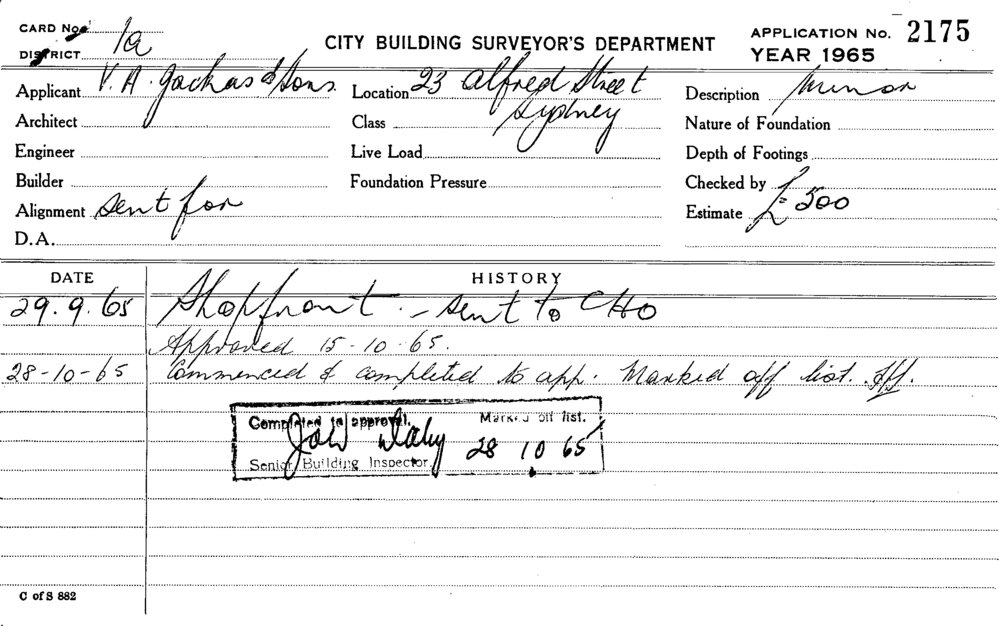 CARD No.
DISTRICT 1a
CITY BUILDING SURVEYOR'S DEPARTMENT
APPLICATION No. 2175
YEAR 1965
Applicant V. A. Jackas & Sons.
Location 23 Alfred Street
Sydney
Description Minor
Architect
Class
Nature of Foundation
Engineer
Live Load
Depth of Footings
Builder
Foundation Pressure
Checked by
Alignment sent for
Estimate £500
D.A.
DATE HISTORY
29.9.65 Shopfront - sent to CHO
Approved 15-10-65.
28-10-65 Commenced & completed to app. Marked off list.
Completed to approval. Marked off list.
28 10 65
Senior Building Inspector.
C of S 882